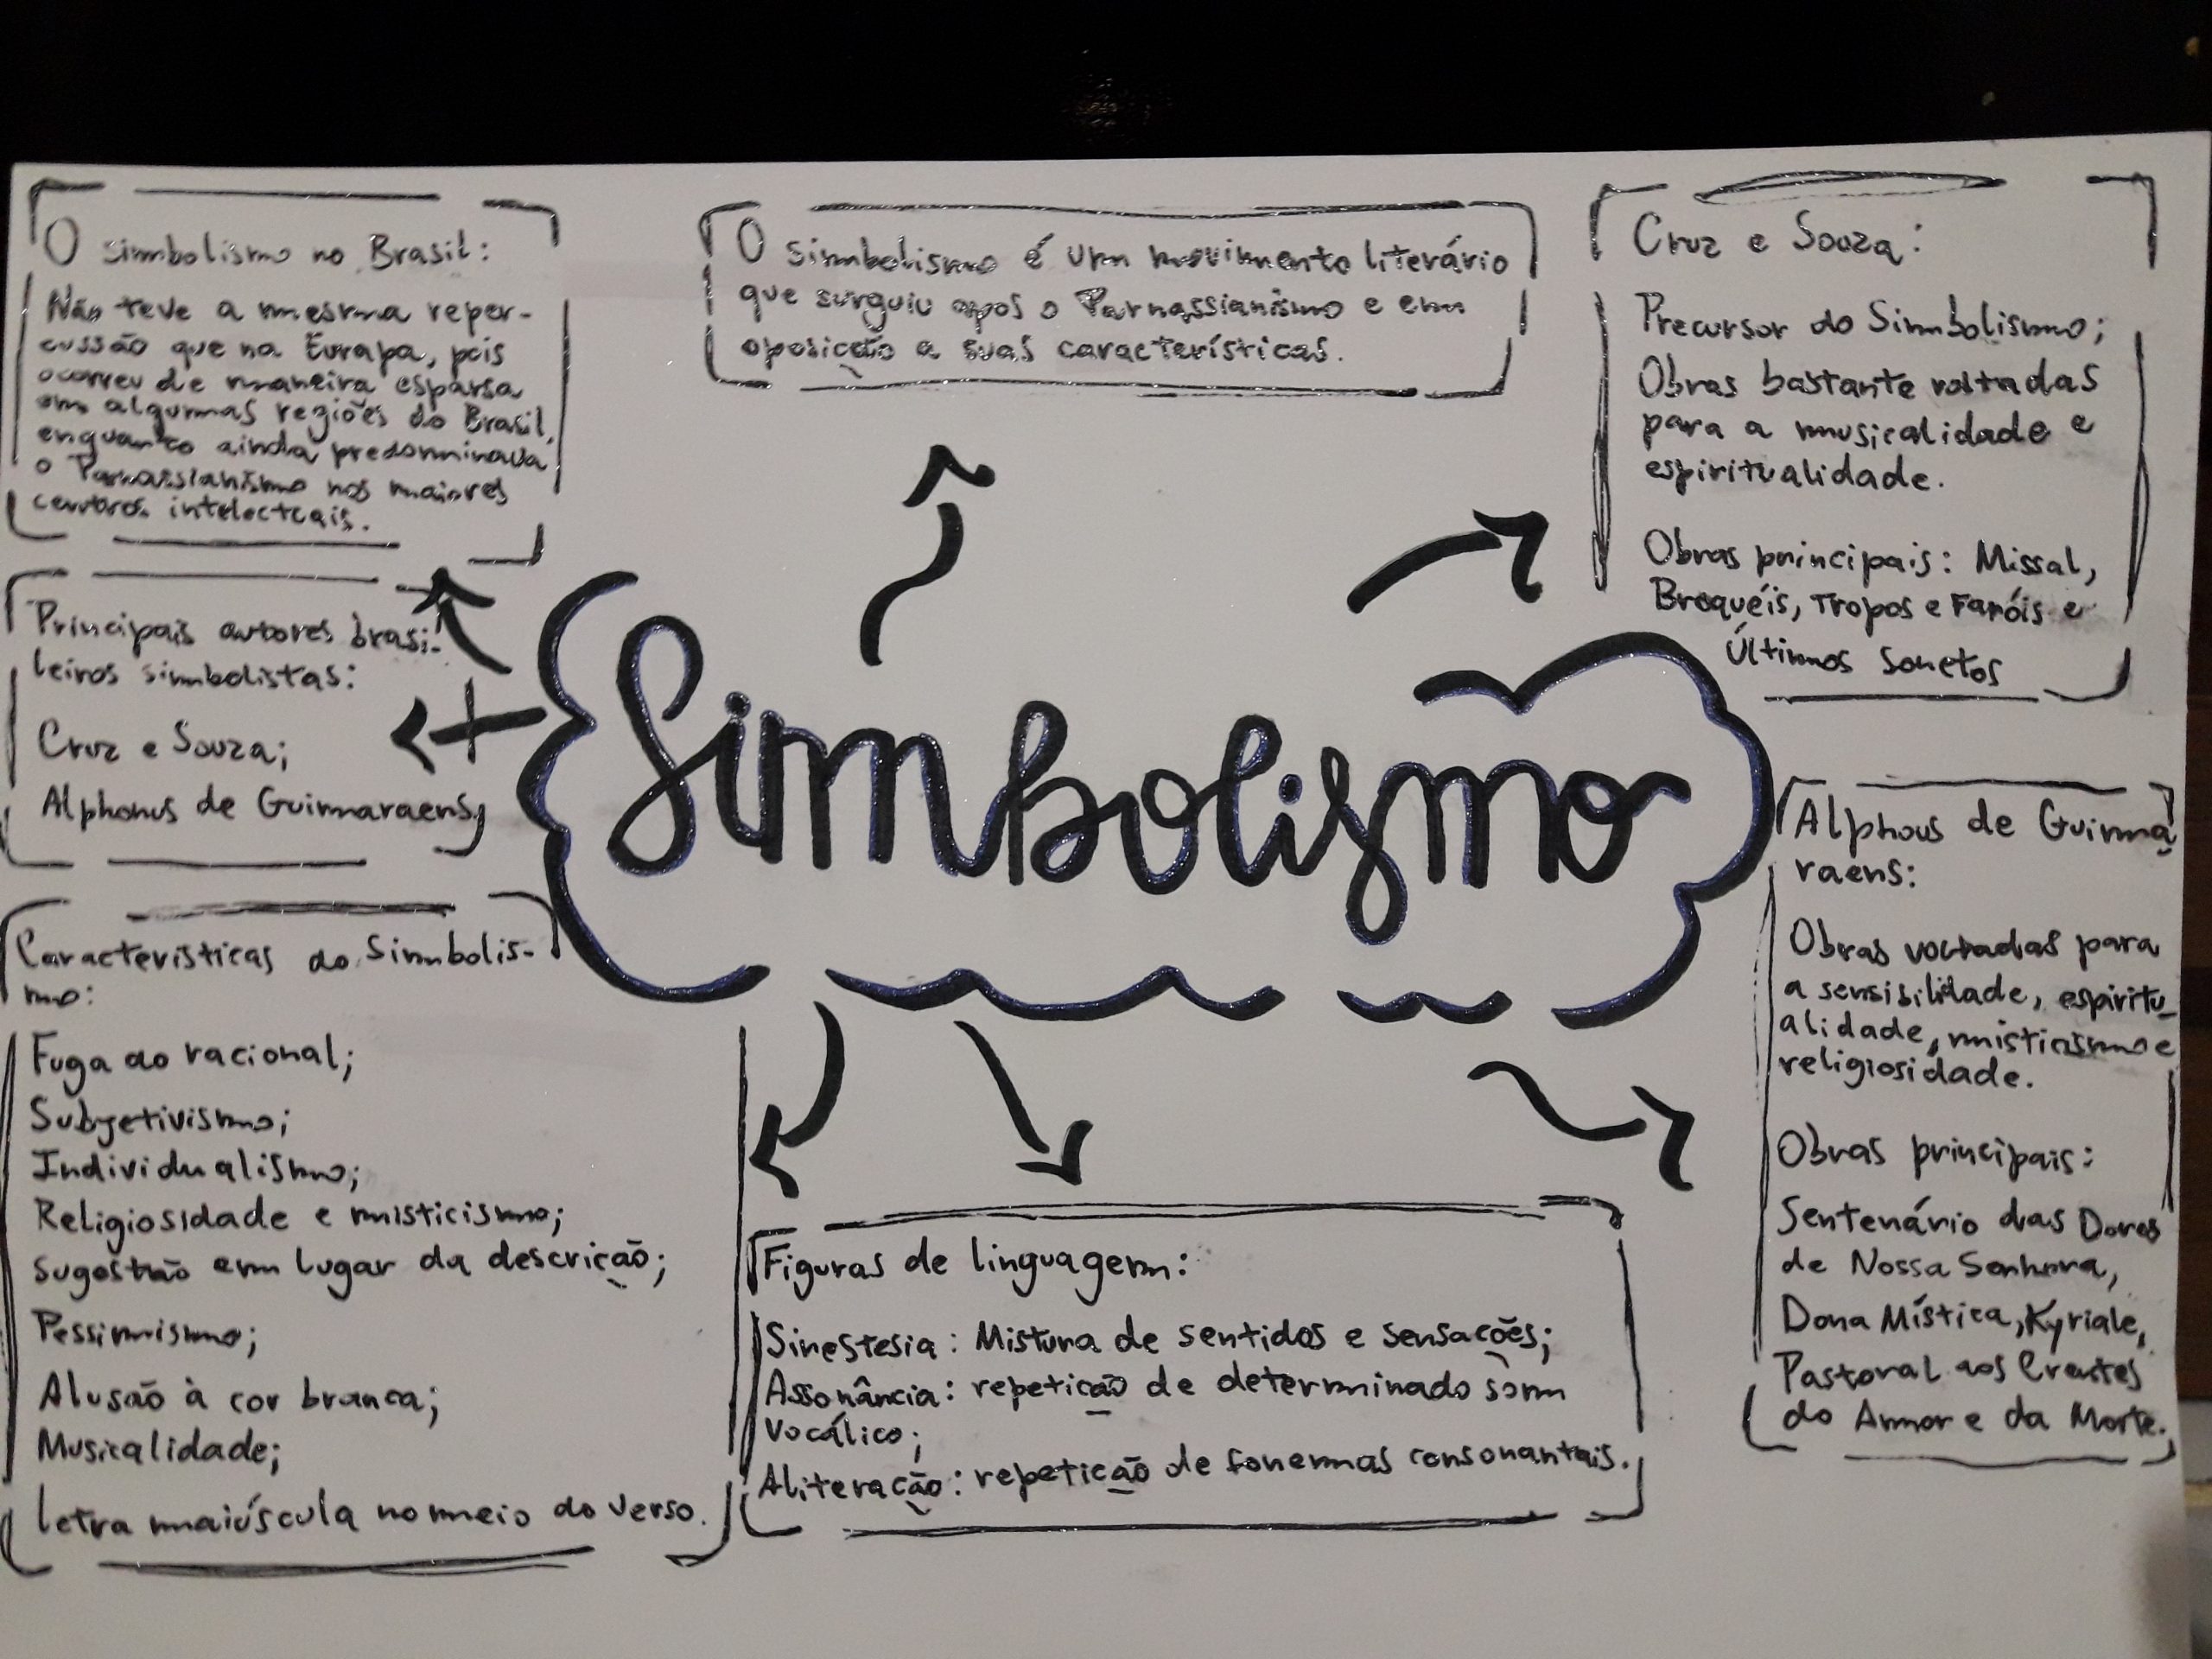 O simbolismo no Brasil:
Não teve a mesma reper-
cussão que na Europa, pois
ocorreu de maneira esparsa
em algumas regiões do Brasil,
enquanto ainda predominava
o Parnassianismo nos maiores
centros intelectuais.
O simbolismo é um movimento literário
que surguiu apos o Parnassianismo e em
oposição a suas característícas.
Cruz e Souza:
Precursor do Simbolismo;
Obras bastante voltadas
para a musicalidade e
espiritualidade.
Obras principais: Missal,
Broquéis, Tropos e Faróis e
Últimos sonetos
Principais autores brasi-
leiros simbolistas:
Cruz e Souza;
Alphonus de Guimaraens;
Simbolismo
Alphous de Guima
raens:
Obras voltadas para
a sensibilidade, espiritu-
alidade, misticismo e
religiosidade.
Obras principais:
Sentenário das Dores
de Nossa Senhora,
Dona Mística, Kyriale,
Pastoral aos Crentes
do Amor e da Morte.
Características do Simbolis-
mo:
Fuga ao racional;
Subjetivismo;
Individualismo;
Religiosidade e misticismo;
Sugestão em lugar da descrição;
Pessimismo;
Alusão à cor branca;
Musicalidade;
letra maiúscula no meio do verso.
Figuras de linguagem:
Sinestesia: Mistura de sentidos e sensações;
Assonância: repetição de determinado som
vocálico;
Aliteração: repetição de fonemas consonantais.